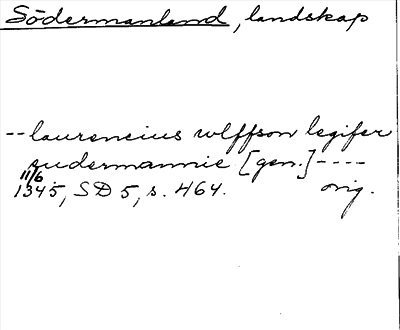 Södermanland, landskap
--laurencius wlffson legifer
sudermannie [gen.]----
11/6
1345, SD 5, s. 464. orig.